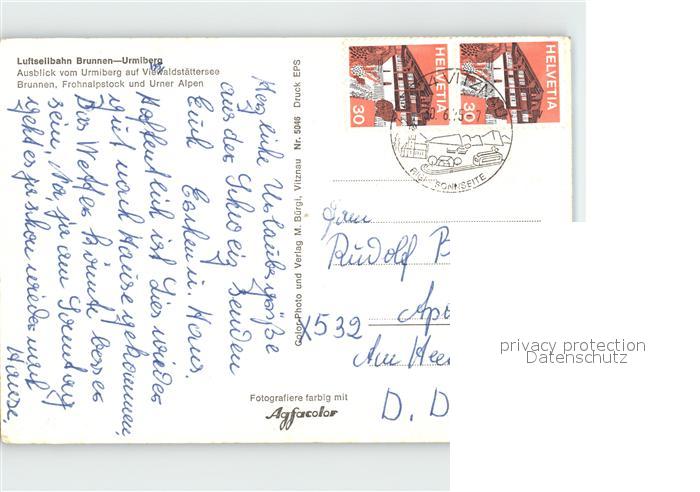 Luftseilbahn Brunnen—Urmiberg
Ausblick vom Urmiberg auf Vierwaldstättersee
Brunnen, Frohnalpstock und Urner Alpen
Herzliche Urlaubsgrüße
aus der Schweiz senden
Euch
u. Hans.
Hoffentlich ist Dies wieder
gut nach Hause gekommen
Das Wetter könnte besser
sein, Na, ja am Sonntag
geht es ja schon wieder nach
Hause.
Color-Photo und Verlag M. Bürgi, Vitznau Nr. 5046 Druck EPS
Fotografiere farbig mit
Agfacolor
HELVETIA
30
HELVETIA
30
VITZNAU
RIGI-SONNSEITE
Fam
Rudolf B
X532 Apo
Am Hee
D. D
privacy protection
Datenschutz